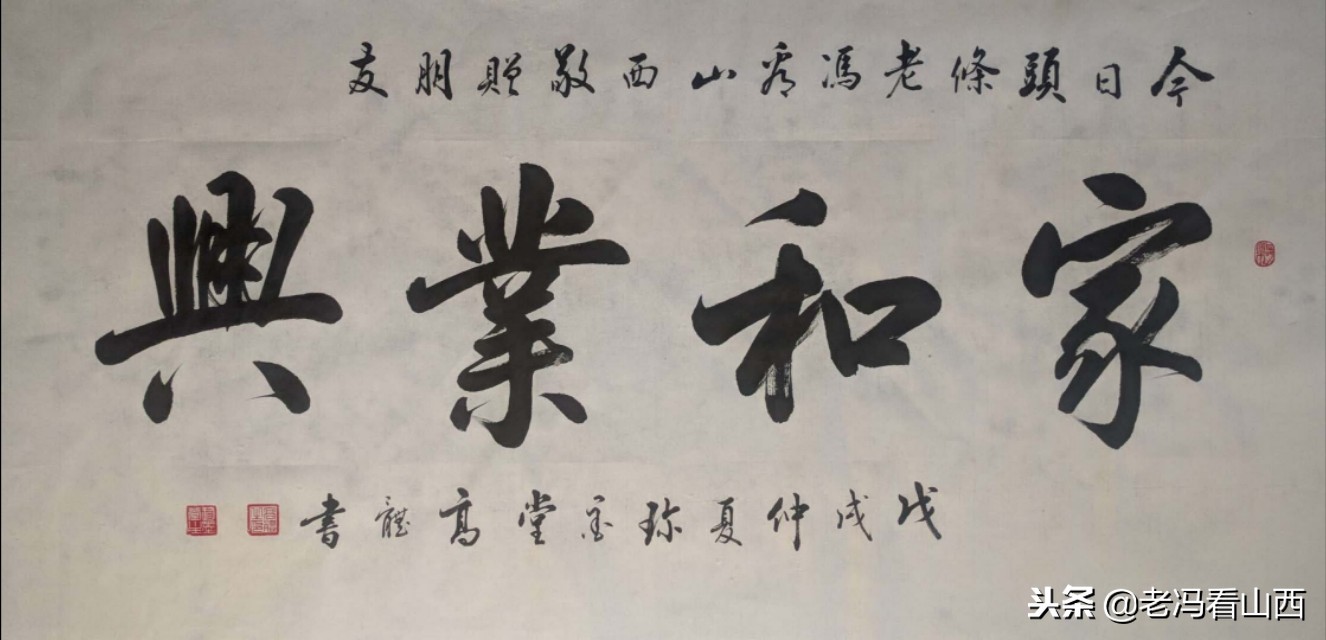 今日頭條老馮看山西敬贈朋友
家和業興
戊戌仲夏珍寶堂高龍書
头条 @老冯看山西